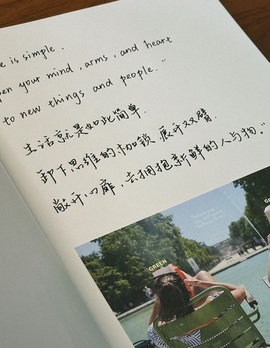 e is simple.
en your mind, arms, and heart
to new things and people."
生活就是如此简单.
卸下思维的枷锁,展开双臂
敞开心扉,去拥抱新鲜的人与物."
GREEN